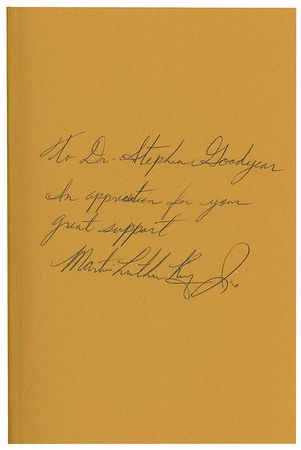 To Dr. Stephen Goodyear
In appreciation for your
great support
Martin Luther King Jr.